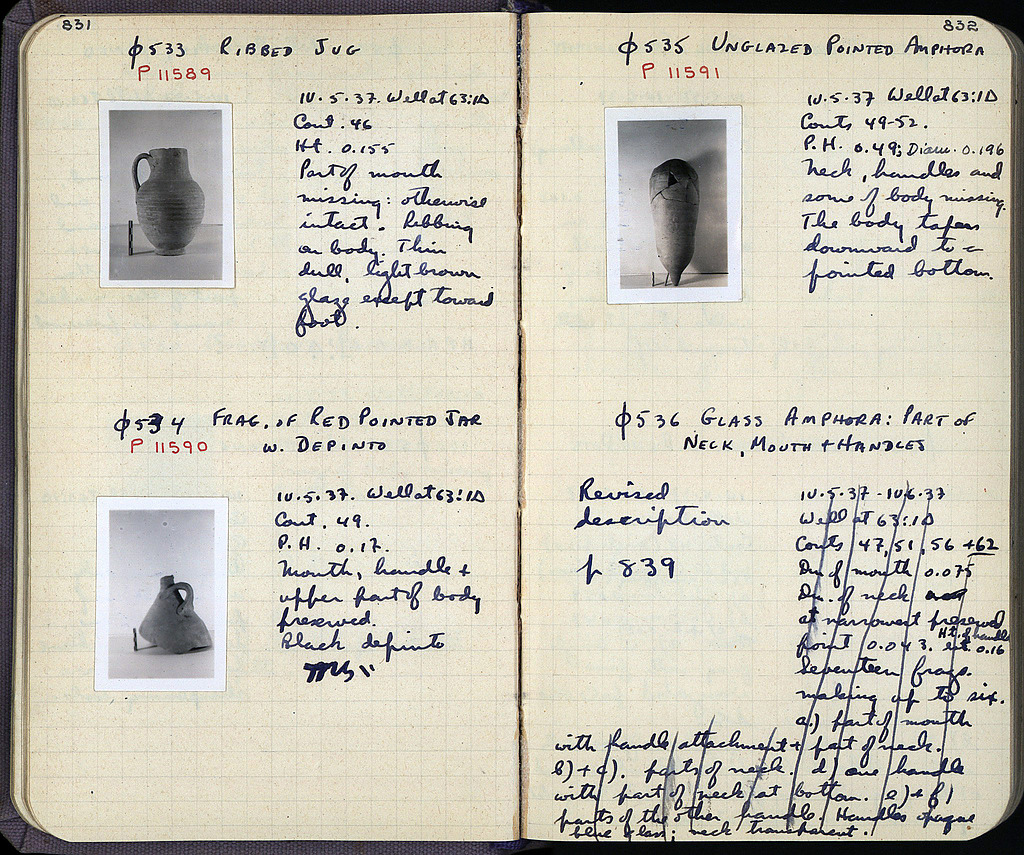 831
φ533 RIBBED JUG
P 11589
IV.5.37. Well at 63:1Δ
Cont. 46
Ht. 0.155
Part of mouth
missing: otherwise
intact. Ribbing
on body. Thin
dull, light brown
glaze except toward
foot.
φ534 FRAG. OF RED POINTED JAR
P 11590 W. DEPINTO
IV.5.37. Well at 63:1Δ
Cont. 49.
P.H. 0.17.
Mouth, handle +
upper part of body
preserved.
Black depinto
832
φ535 UNGLAZED POINTED AMPHORA
P 11591
IV.5.37 Well at 63:1Δ
Conts 49-52.
P.H. 0.49; Diam. 0.196
Neck, handles and
some of body missing.
The body tapers
downward to a
pointed bottom.
φ536 GLASS AMPHORA: PART OF
NECK, MOUTH + HANDLES
Revised
description
p 839
IV.5.37 - IV.6.37
Well at 63:1Δ
Conts 47, 51, 56 +62
Dm. of mouth 0.075
Dm. of neck
at narrowest preserved
point 0.043. Ht. of handle est. 0.16
Seventeen frags.
making up to six.
a.) part of mouth
with handle attachment + part of neck.
b) + c). parts of neck. d) one handle
with part of neck at bottom. e) + f)
parts of the other handle. Handles opaque
blue glass; neck transparent.